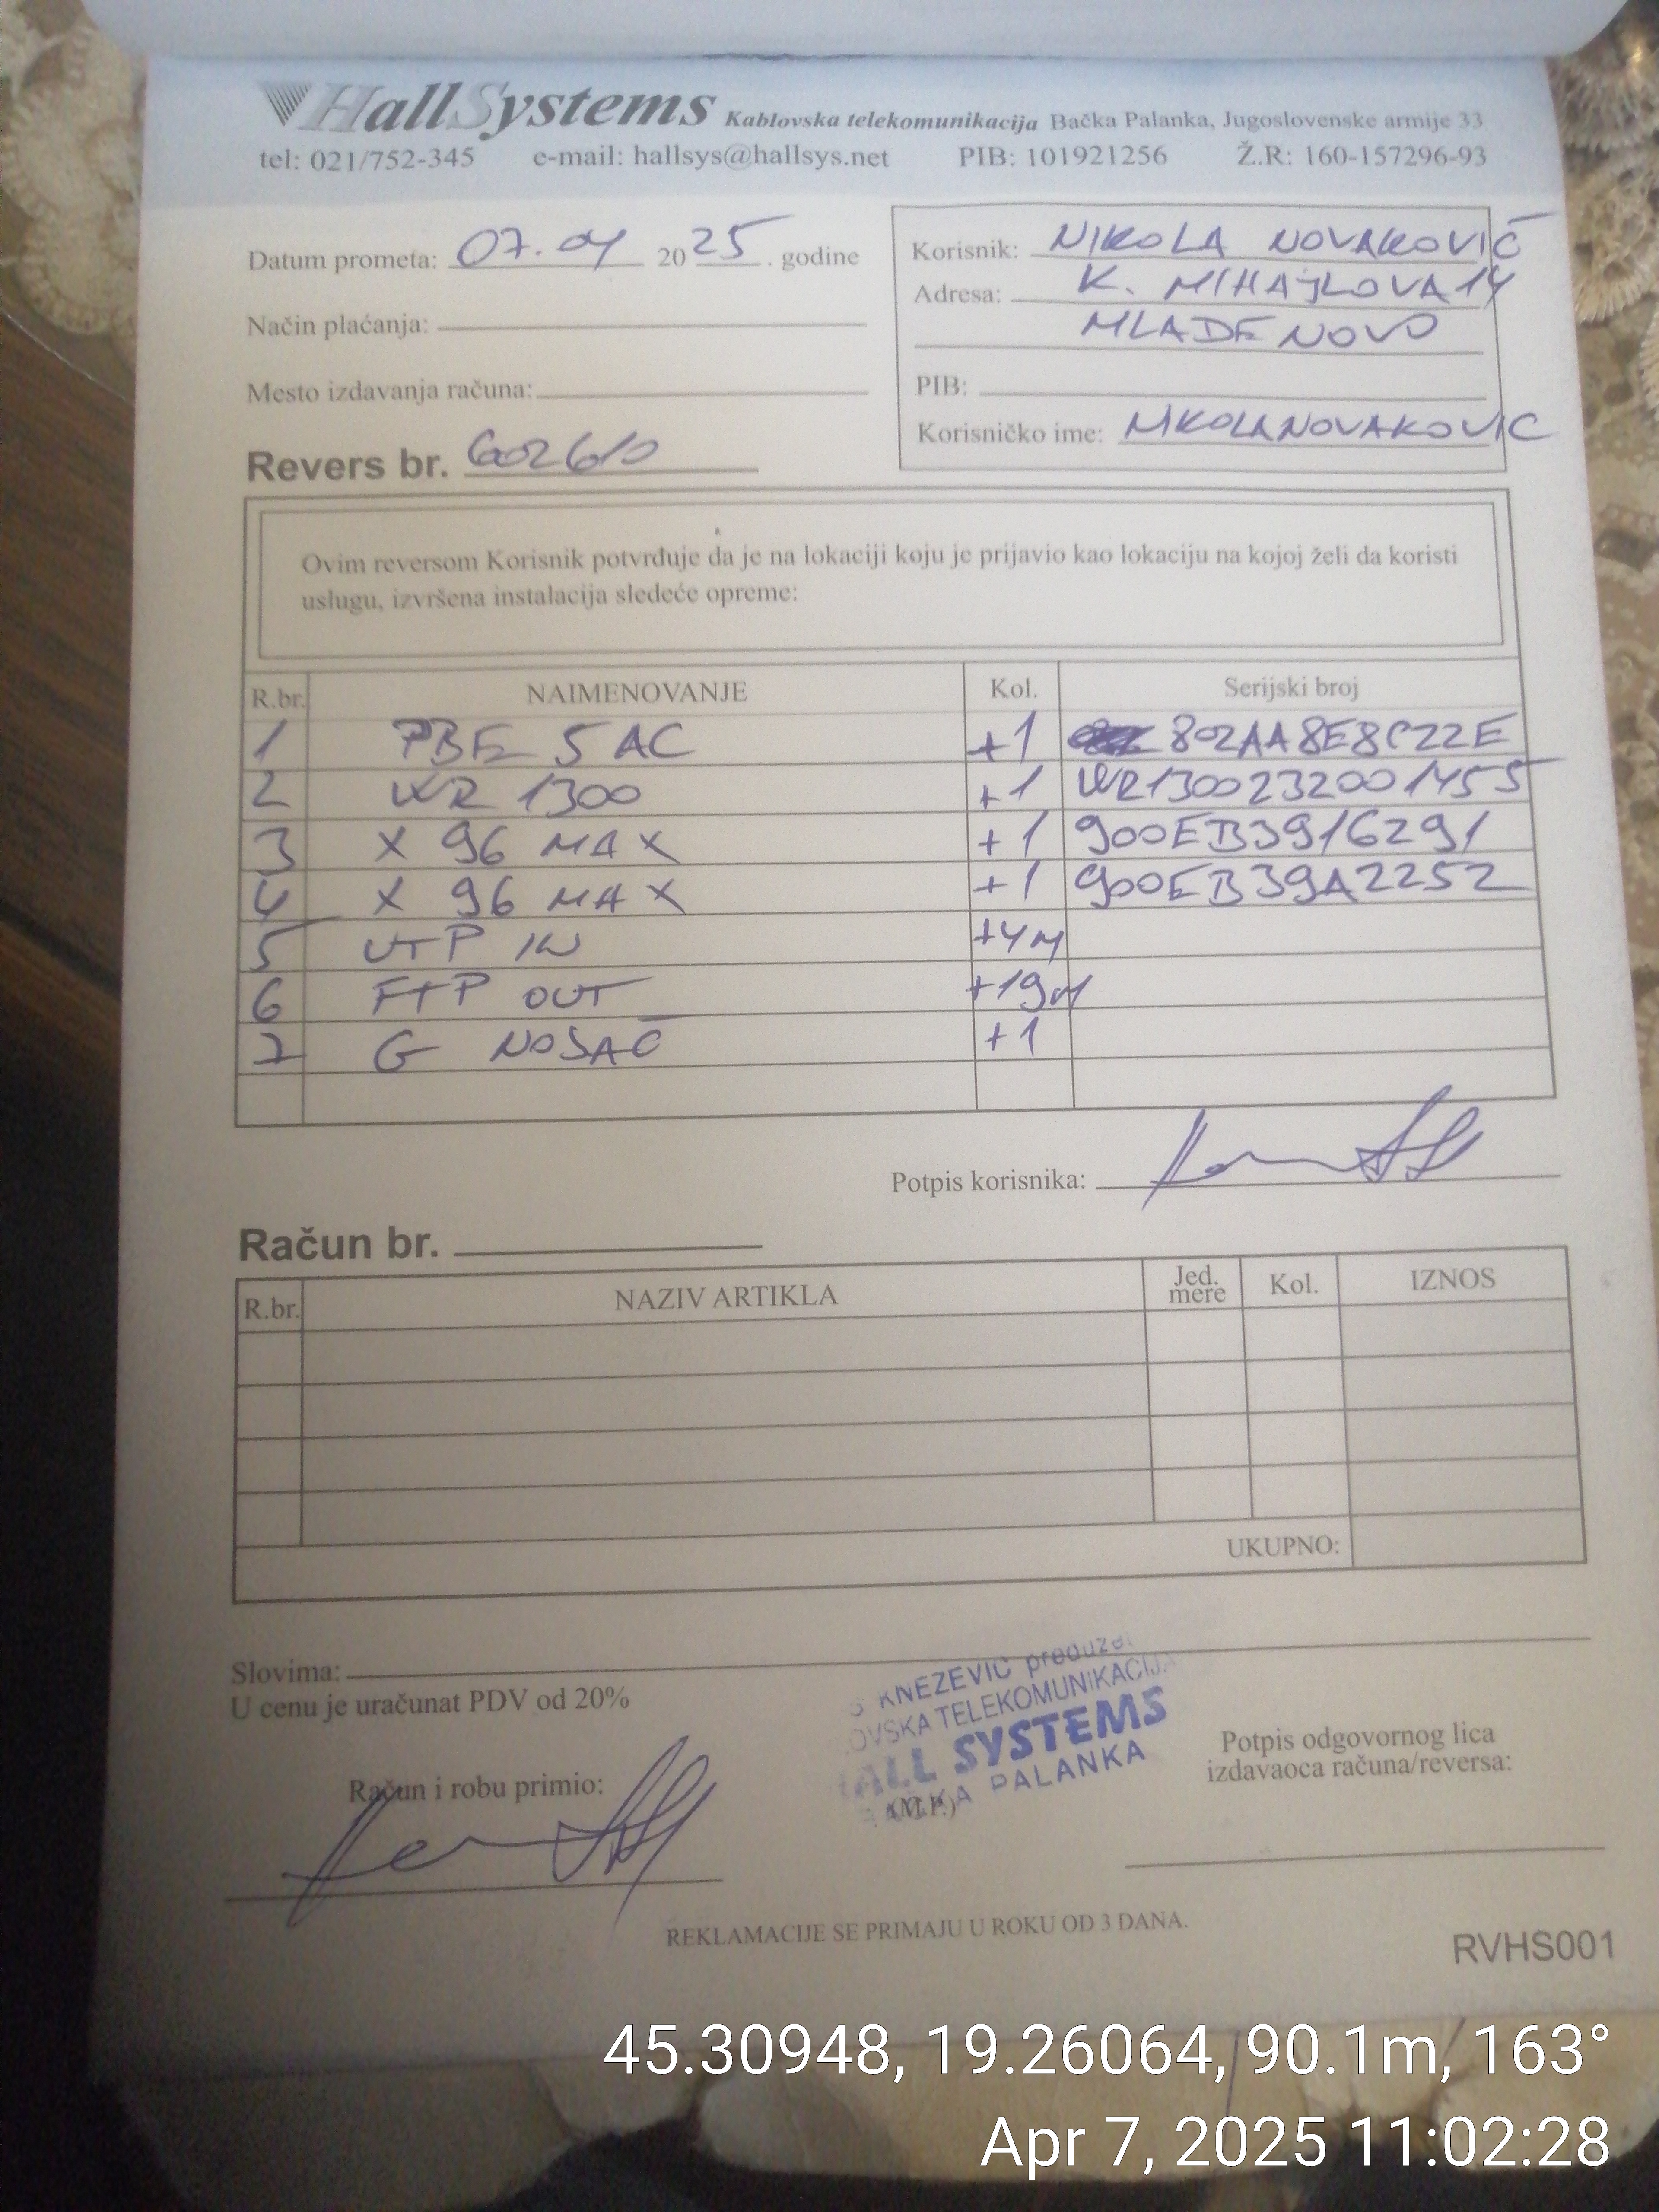 HallSystems Kablovska telekomunikacija Bačka Palanka, Jugoslovenske armije 33
tel: 021/752-345 e-mail: hallsys@hallsys.net PIB: 101921256 Ž.R: 160-157296-93
Datum prometa: 07.04 2025. godine
Način plaćanja:
Mesto izdavanja računa:
Revers br. 602610
Korisnik: NIKOLA NOVAKOVIĆ
Adresa: K. MIHAJLOVA 14
MLADENOVO
PIB:
Korisničko ime: NIKOLANOVAKOVIC
Ovim reversom Korisnik potvrđuje da je na lokaciji koju je prijavio kao lokaciju na kojoj želi da koristi
uslugu, izvršena instalacija sledeće opreme:
R.br. NAIMENOVANJE Kol. Serijski broj
1 PBE 5 AC +1 802AA8E8C22E
2 WR 1300 +1 WR1300232001455
3 X 96 MAX +1 900EB3916291
4 X 96 MAX +1 900EB39A2252
5 UTP IN +4M
6 FTP OUT +19M
7 G NOSAČ +1
Potpis korisnika:
Račun br.
R.br. NAZIV ARTIKLA Jed. mere Kol. IZNOS
UKUPNO:
Slovima:
U cenu je uračunat PDV od 20%
KNEZEVIC preduze
OVSKA TELEKOMUNIKACIJA
HALL SYSTEMS
PALANKA
(M.P.)
Račun i robu primio:
Potpis odgovornog lica
izdavaoca računa/reversa:
REKLAMACIJE SE PRIMAJU U ROKU OD 3 DANA.
RVHS001
45.30948, 19.26064, 90.1m, 163°
Apr 7, 2025 11:02:28